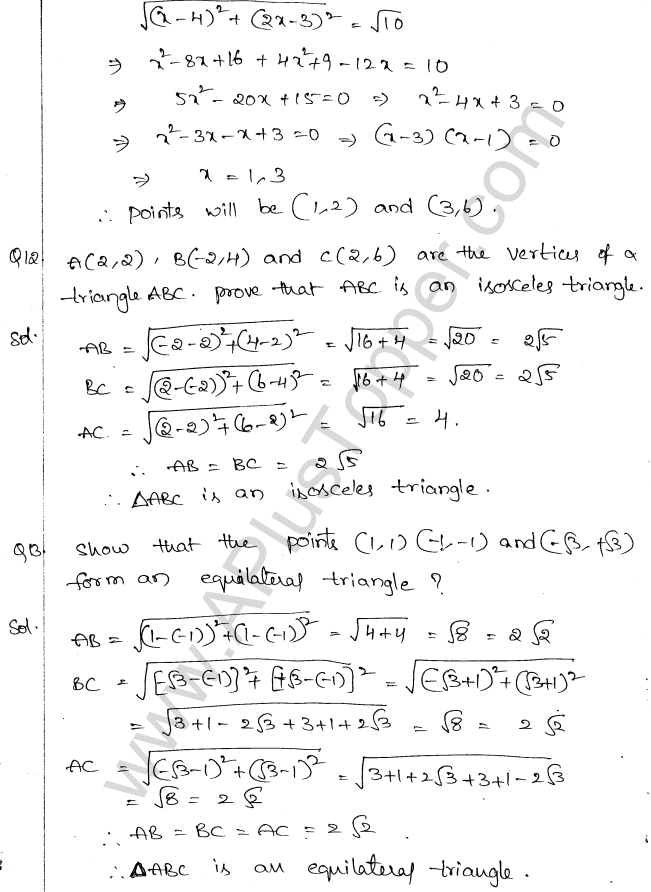 √(x-4)² + (2x-3)² = √10
⇒ x²-8x+16 + 4x²+9-12x = 10
⇒ 5x²-20x+15=0 ⇒ x²-4x+3=0
⇒ x²-3x-x+3=0 ⇒ (x-3)(x-1)=0
⇒ x = 1,3
∴ points will be (1,2) and (3,6).
Q12. A(2,2), B(-2,4) and C(2,6) are the vertices of a
triangle ABC. prove that ABC is an isosceles triangle.
Sol. AB = √(-2-2)²+(4-2)² = √16+4 = √20 = 2√5
BC = √(2-(-2))²+(6-4)² = √16+4 = √20 = 2√5
AC = √(2-2)²+(6-2)² = √16 = 4.
∴ AB = BC = 2√5
∴ ΔABC is an isosceles triangle.
Q13. Show that the points (1,1) (-1,-1) and (-√3,+√3)
form an equilateral triangle ?
Sol. AB = √(1-(-1))²+(1-(-1))² = √4+4 = √8 = 2√2
BC = √[-√3-(-1)]²+[+√3-(-1)]² = √(-√3+1)²+(√3+1)²
= √3+1-2√3+3+1+2√3 = √8 = 2√2
AC = √(-√3-1)²+(√3-1)² = √3+1+2√3+3+1-2√3
= √8 = 2√2
∴ AB = BC = AC = 2√2.
∴ ΔABC is an equilateral triangle.
www.APlusTopper.com